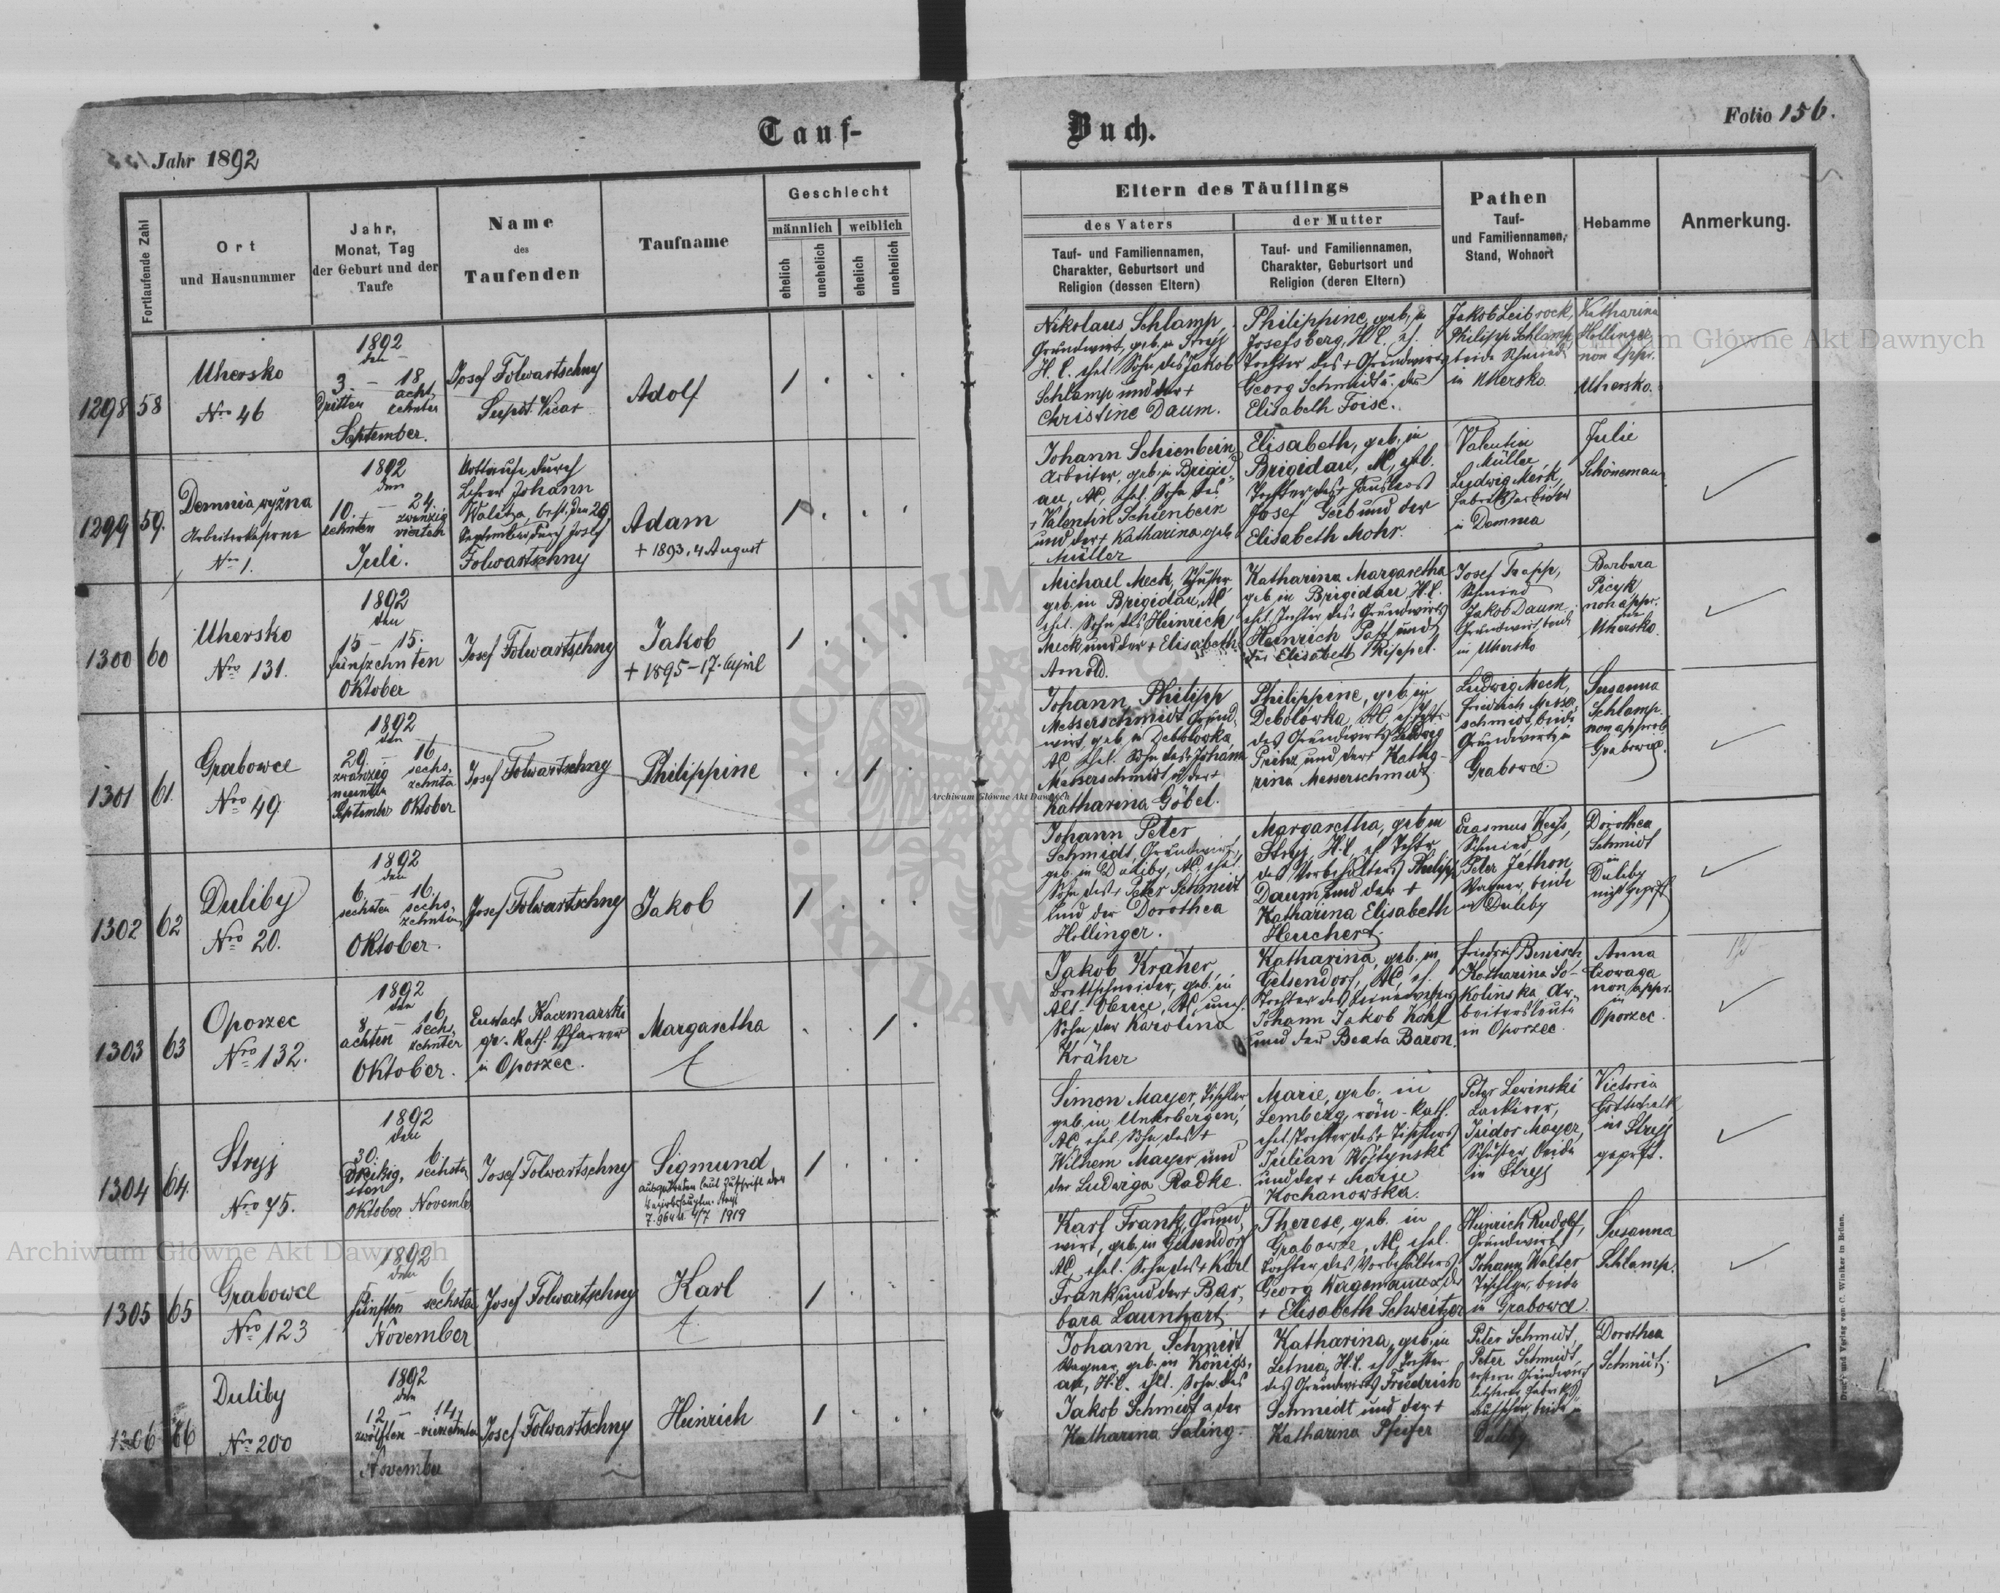 Tauf-
Buch.
Folio 156.
Jahr 1892
Fortlaufende Zahl
Ort
und Hausnummer
Jahr,
Monat, Tag
der Geburt und der
Taufe
Name
des
Taufenden
Taufname
Geschlecht
männlich
weiblich
ehelich
unehelich
ehelich
unehelich
Eltern des Täuflings
des Vaters
Tauf- und Familiennamen,
Charakter, Geburtsort und
Religion (dessen Eltern)
der Mutter
Tauf- und Familiennamen,
Charakter, Geburtsort und
Religion (deren Eltern)
Pathen
Tauf-
und Familiennamen,
Stand, Wohnort
Hebamme
Anmerkung.
1298 58
Uhersko
Nro 46
1892
den
3. – 18
dritten achtzehnter
September.
Josef Folwartschny
Supdt. Vicar
Adolf
1
Nikolaus Schlamp,
Grundwirt, geb. in Stryj
H.C. ehel. Sohn des Jakob
Schlamp und der +
Christine Daum.
Philippine, geb. in
Josefsberg, H.C., eh.
Tochter des + Grundwirts
Georg Schmidt u. der
Elisabeth Foise.
Jakob Leibrock,
Philipp Schlamp
beide Schmiede
in Uhersko
Katharina
Hollinger
non appr.
Uhersko.
1299 59.
Demnia wyżna
Arbeiterkaserne
Nro 1.
1892
den
10. – 24.
zehnten zwanzig
vierten
Juli.
Nottaufe durch
Lehrer Johann
Walitza, best. den 26
September durch Josef
Folwartschny
Adam
+ 1893, 4 August
1
Johann Schienbein
Arbeiter, geb. in Brigid
au, AC, ehel. Sohn des
+ Valentin Schienbein
und der + Katharina geb.
Müller
Elisabeth, geb. in
Brigidau, AC, ehel.
Tochter des +
Josef Geib und der
Elisabeth Mohr.
Valentin
Müller
Ludwig Merk,
Fabriksarbeiter
in Demnia
Julie
Schöneman
1300 60
Uhersko
Nro 131.
1892
den
15 – 15.
fünfzehnten
Oktober
Josef Folwartschny
Jakob
+ 1895 – 17. April
1
Michael Meck, Schuster
geb. in Brigidau, AC
ehel. Sohn des Heinrich
Meck und der + Elisabeth
Arnold.
Katharina Margaretha
geb. in Brigidau, H.C.
ehel. Tochter des Grundwirts
Heinrich Paff und
der Elisabeth Rippel.
Josef Trapp,
Schmied
Jakob Daum
Grundwirt, beide
in Uhersko
Barbara
Picyk
non appr.
in
Uhersko.
1301 61.
Grabowce
Nro 49.
1892
den
29. – 16.
zwanzig sechs
neunten zehnten
September Oktober
Josef Folwartschny
Philippine
1
Johann Philipp
Messerschmidt, Grund
wirt, geb. in Debolowka
AC, ehel. Sohn des + Johann
Messerschmidt u. der +
Katharina Göbel.
Philippine, geb. in
Debolówka, AC, eh. Tochter
des Grundwirts Ludwig
Prinz und der + Katha
rina Messerschmidt
Ludwig Meck,
Friedrich Messer
schmidt, beide
Grundwirte in
Grabowce
Susanna
Schlamp
non approb.
Grabowce.
1302 62
Duliby
Nro 20.
1892
den
6. – 16.
sechsten sechs
zehnten
Oktober.
Josef Folwartschny
Jakob
1
Johann Peter
Schmidt, Grundwirt,
geb. in Duliby, AC, ehel.
Sohn des + Peter Schmidt
und der Dorothea
Hollinger.
Margaretha, geb. in
Stryj, H.C. eh. Tochter
des Vorbehälters Philipp
Daum und der +
Katharina Elisabeth
Heuchert.
Erasmus Keiss,
Schmied,
Peter Jethon
Wagner, beide
in Duliby
Dorothea
Schmidt
in
Duliby
nicht geprüft.
1303 63
Oporzec
Nro 132.
1892
den
8. – 16.
achten sech
zehnter
Oktober.
Eustach Kaczmarski
gr.-Kath. Pfarrer
in Oporzec.
Margaretha
1
Jakob Kräher,
Brettschneider, geb. in
Alt-, AC, uneh.
Sohn der Karolina
Kräher
Katharina, geb. in
Gelsendorf, AC, eh.
Tochter des
Johann Jakob Kohl
und der Beata Baron.
Friedrich Benisch,
Katharina So-
kolinska Ar-
beitersleute
in Oporzec.
Anna
non appr.
in
Oporzec.
1304 64.
Stryj
Nro 75.
1892
den
30. 6.
Dreißig, sechsten
sten
Oktober November
Josef Folwartschny
Sigmund
ausgetreten laut Zuschrift der
1919
1
Simon Mayer, Tischler
geb. in Unterbergen,
AC, ehel. Sohn des +
Wilhem Mayer und
der Ludwga Radke.
Marie, geb. in
Lemberg, röm-kath.
ehel. Tochter des + Tischlers
Julian Wojtynski
und der + Marie
Kochanowska.
Peter Levinski
Lackirer,
Isidor Mayer,
Schuster beide
in Stryj
Victoria
Gottschalk
in Stryj
geprft.
1305 65
Grabowce
Nro 123
1892
den
5 – 6
fünften sechsten
November
Josef Folwartschny
Karl
1
Karl Frank, Grund
wirt, geb. in Gelsendorf
AC, ehel. Sohn des + Karl
Frank und der + Bar
bara Launhart
Therese, geb. in
Grabowce, AC, ehel.
Tochter des Vorbehälters
Georg Wagemann u. der
+ Elisabeth Schweitzer
Heinrich Rudolf,
Grundwirt,
Johann Walter
Tischler, beide
in Grabowce.
Susanna
Schlamp.
1306 66
Duliby
Nro 200
1892
den
12. – 14.
zwölften – vierzehnten
November
Josef Folwartschny
Heinrich
1
Johann Schmidt
Wagner, geb. in Königs
au, H.C. ehl. Sohn des
Jakob Schmidt u. der
Katharina Saling.
Katharina, geb. in
Letnia, H.C. eh Tochter
des Grundwirts Friedrich
Schmidt und der +
Katharina Pfeifer
Peter Schmidt,
Peter Schmidt,
ersterer Grundwirt
letzterer Fabriks
aufseher, beide in
Duliby
Dorothea
Schmidt.
Druck und Verlag von C. Winiker in Brünn.
Archiwum Główne Akt Dawnych
Archiwum Główne Akt Dawnych
Archiwum Główne Akt Dawnych